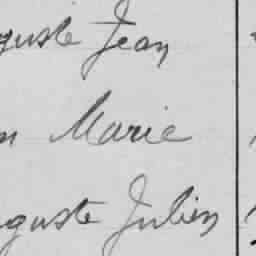 guste Jean
n Marie
guste Julien